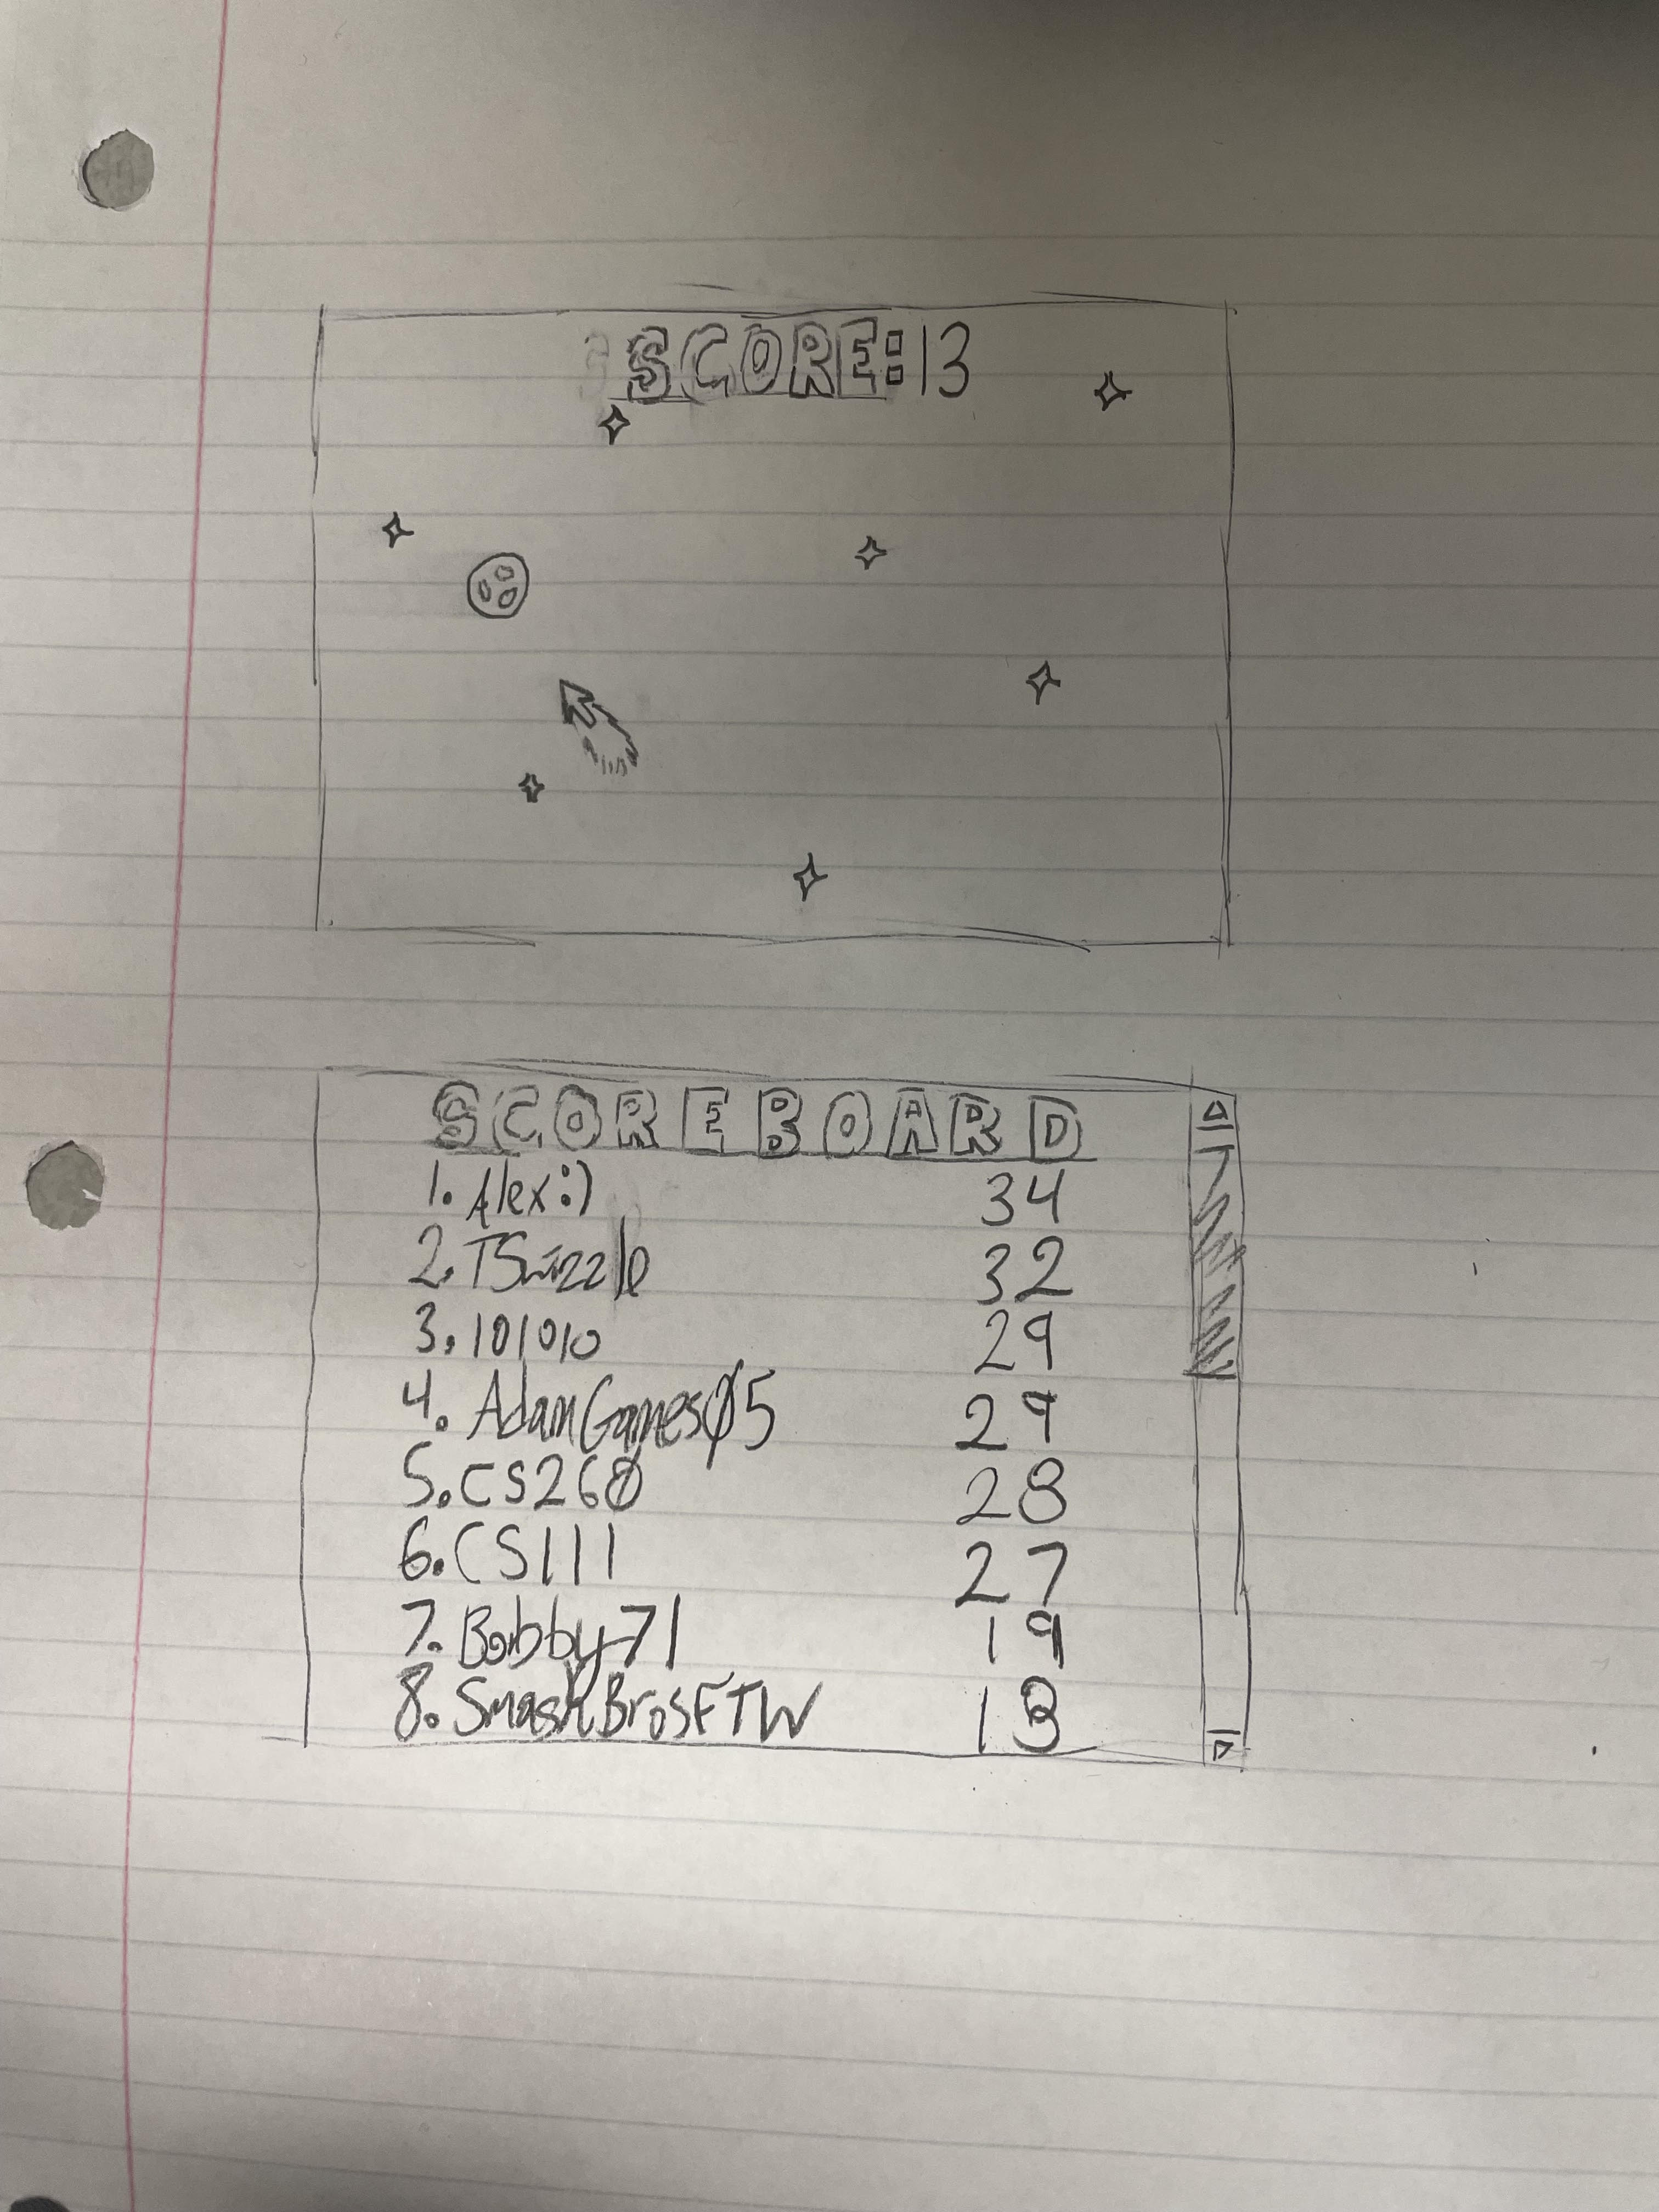 SCORE:13
SCOREBOARD
1. Alex:) 34
2. TSwizzle 32
3. 101010 29
4. AdamGames05 29
5. CS260 28
6. CS111 27
7. Bobby71 19
8. SmashBrosFTW 13